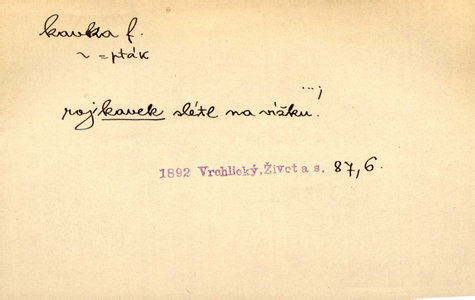 kavka f.
~ = pták
roj kavek slétl na vížku.
1892 Vrchlický, Život a s. 87,6.